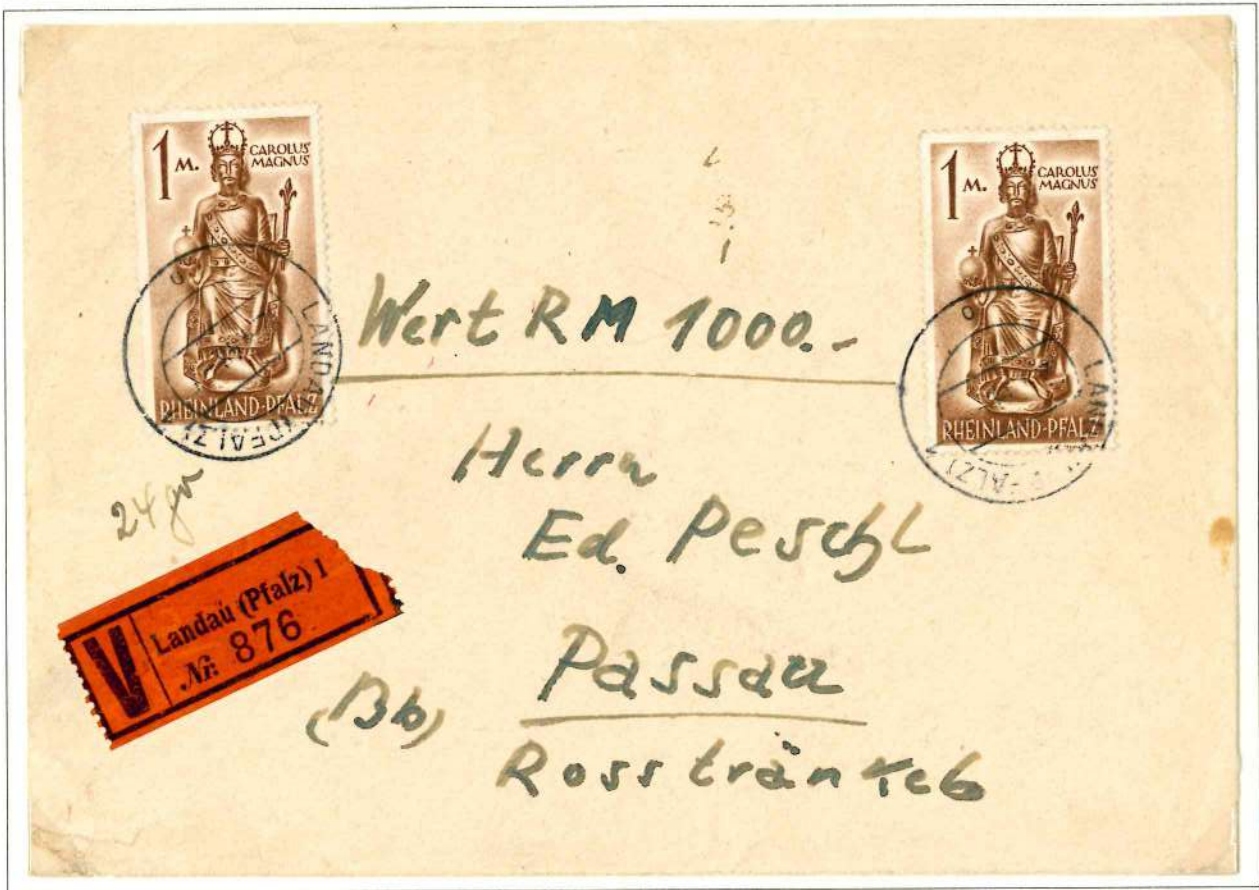 1 M.
CAROLUS
MAGNUS
RHEINLAND-PFALZ
1 M.
CAROLUS
MAGNUS
RHEINLAND-PFALZ
LANDAU (PFALZ)
(PFALZ)
Wert RM 1000.-
Herrn
Ed. Peschl
24 gr
V
Landau (Pfalz) 1
Nr. 876
Passau
(13b)
Rosstränke 6